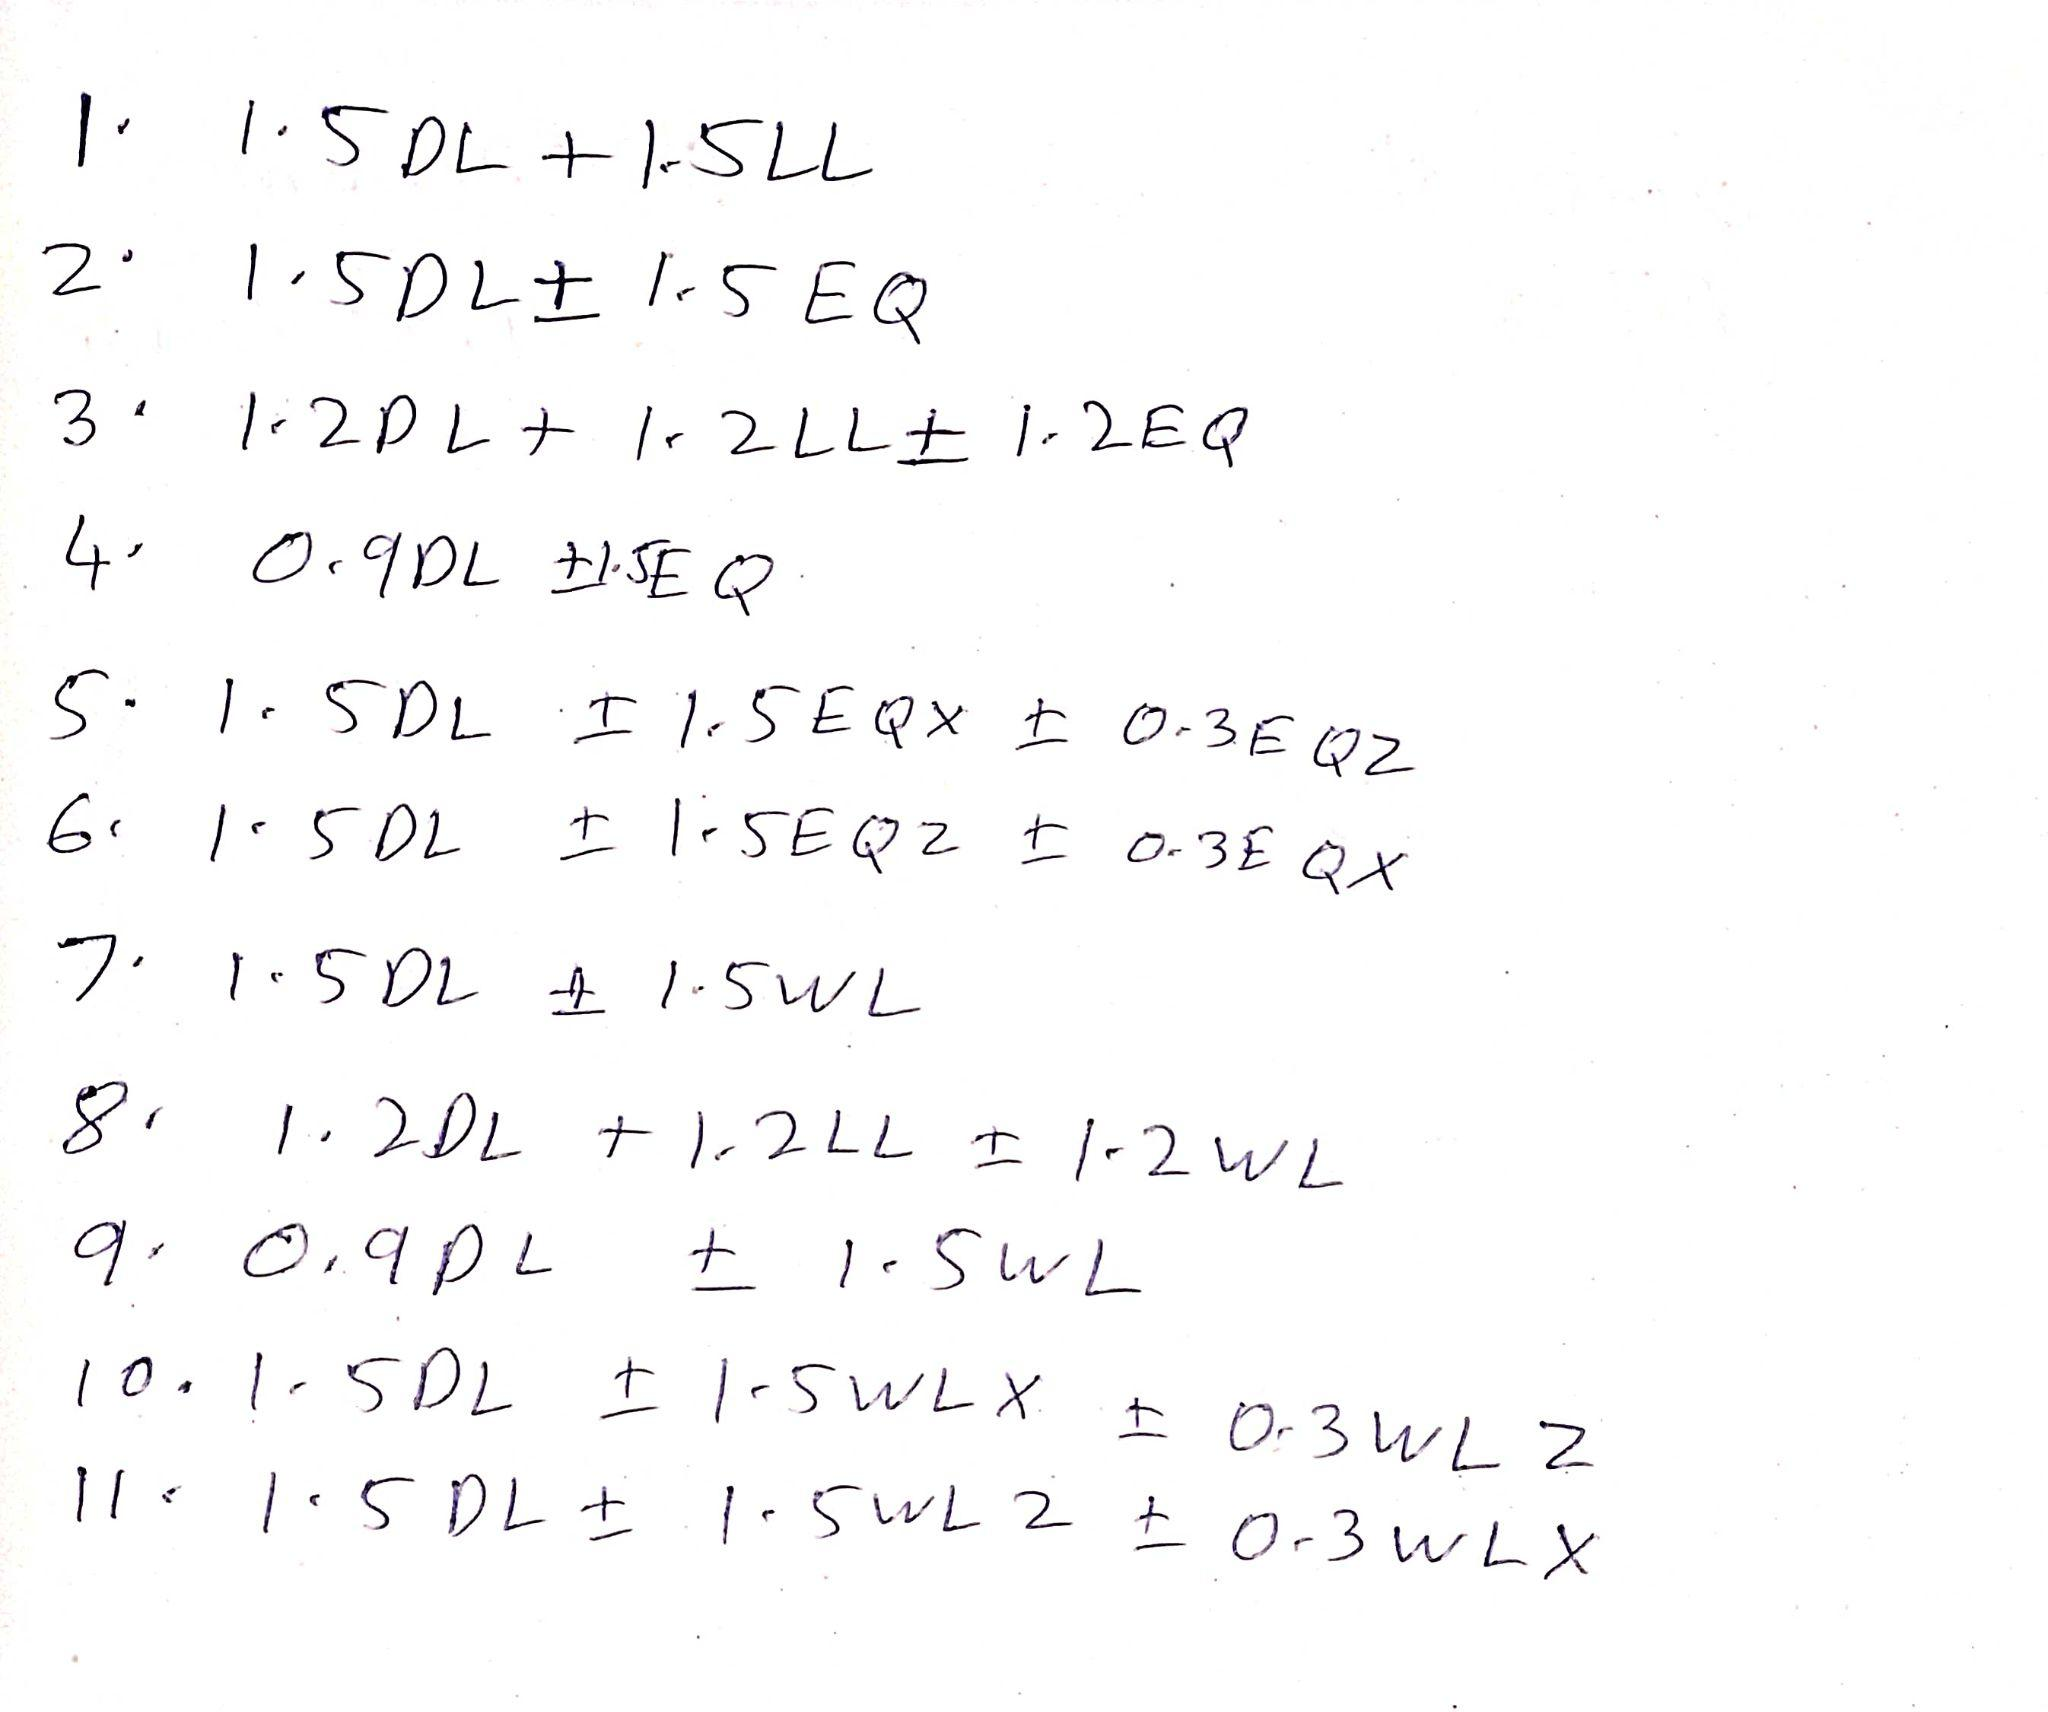 1. 1.5DL + 1.5LL
2. 1.5DL ± 1.5EQ
3. 1.2DL + 1.2LL ± 1.2EQ
4. 0.9DL ±1.5EQ
5. 1.5DL ± 1.5EQX ± 0.3EQZ
6. 1.5DL ± 1.5EQZ ± 0.3EQX
7. 1.5DL ± 1.5WL
8. 1.2DL + 1.2LL ± 1.2WL
9. 0.9DL ± 1.5WL
10. 1.5DL ± 1.5WLX ± 0.3WLZ
11. 1.5DL ± 1.5WLZ ± 0.3WLX